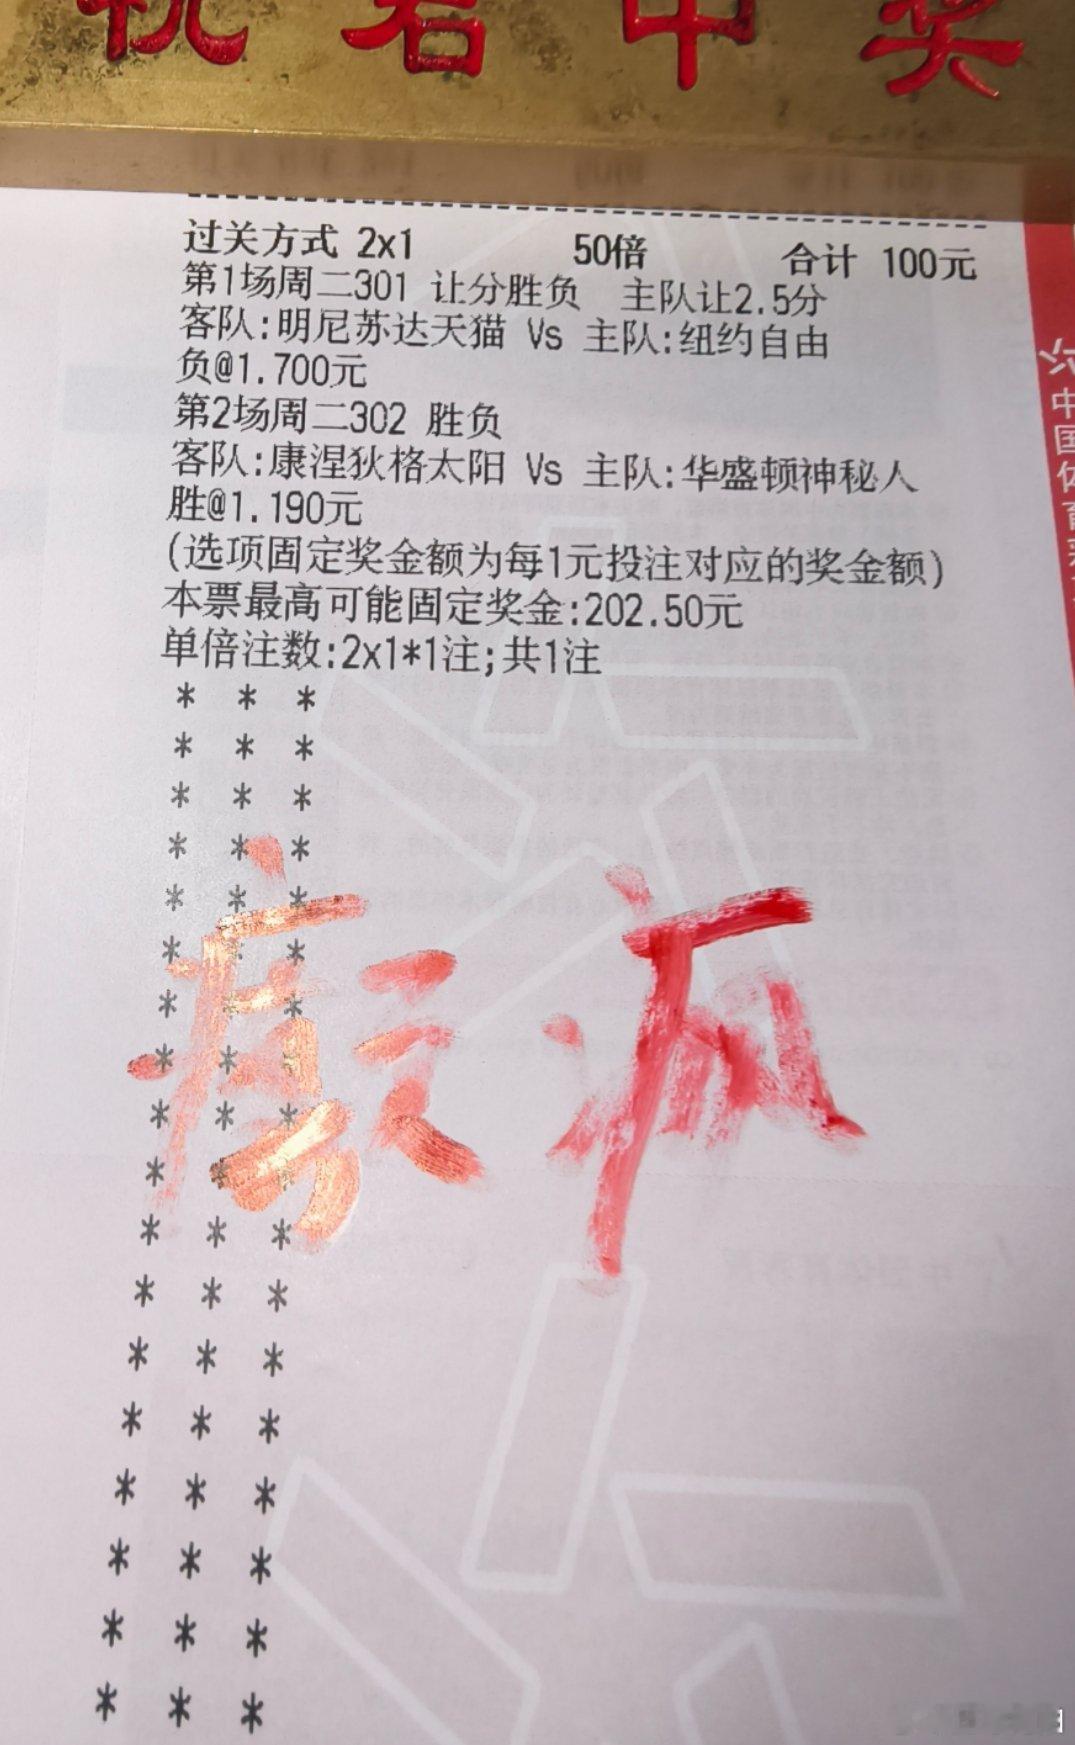 祝君中奖
过关方式 2x1 50倍 合计 100元
第1场周二301 让分胜负 主队让2.5分
客队:明尼苏达天猫 Vs 主队:纽约自由
负@1.700元
第2场周二302 胜负
客队:康涅狄格太阳 Vs 主队:华盛顿神秘人
胜@1.190元
(选项固定奖金额为每1元投注对应的奖金额)
本票最高可能固定奖金:202.50元
单倍注数:2x1*1注;共1注
* * *
* * *
* * *
* * *
* * *
* * *
* * *
* * *
* * *
* * *
* * *
* * *
* * *
* * *
* * *
* * *
* * *
* * *
中国体育